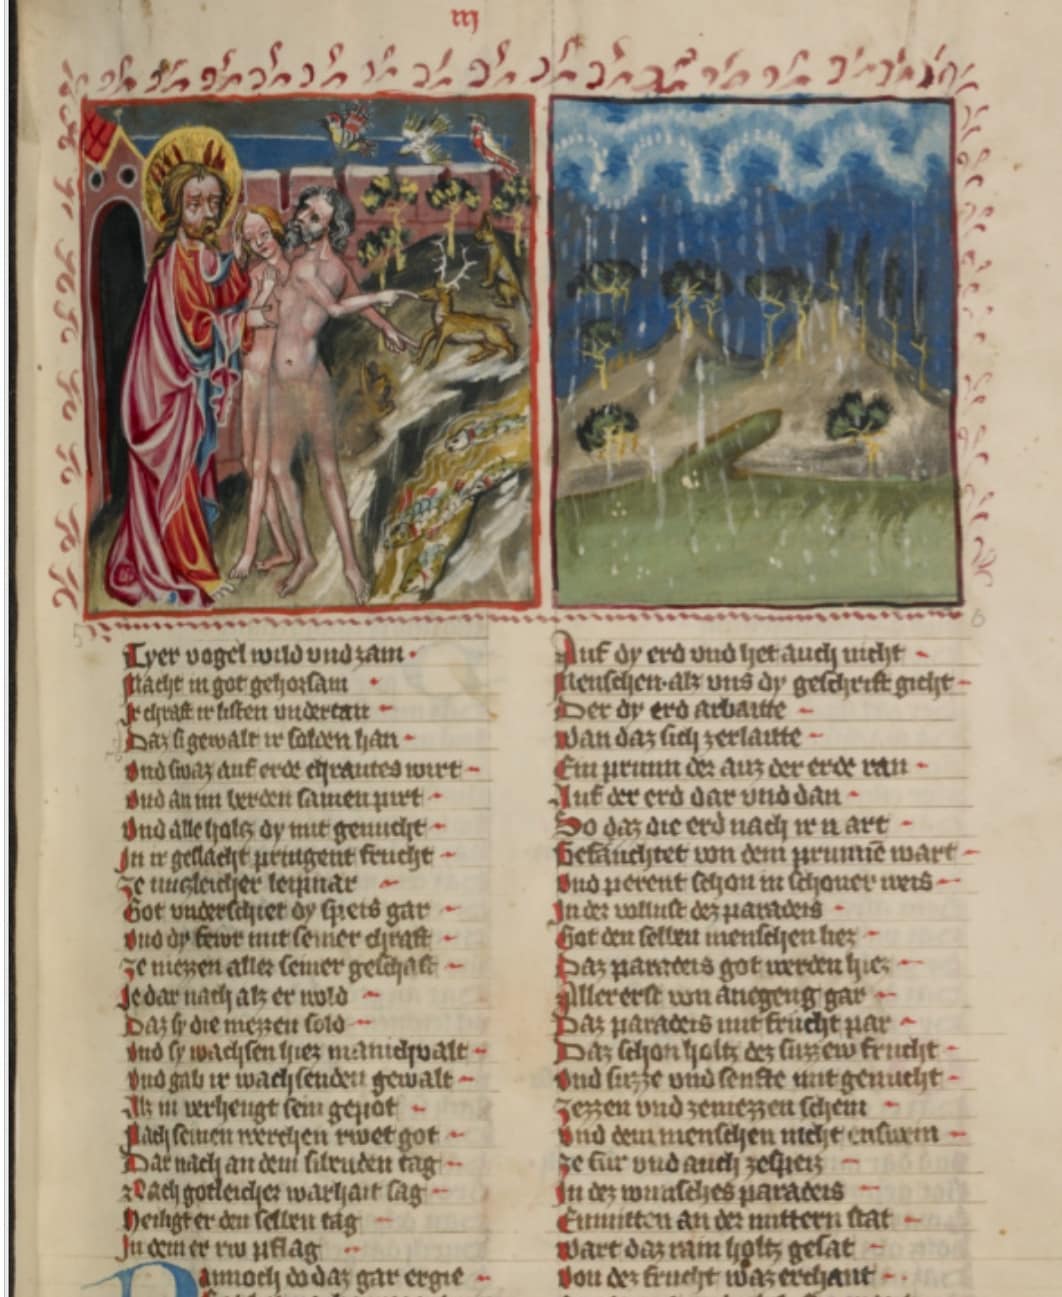 iij
5
6
Tyer vogel wild vnd zam
Macht in got gehorsam
Ir chraft ir listen vndertan
Daz si gewalt ir solden han
Vnd swaz auf erde chrautes wirt
Vnd an im berden samen pirt
Vnd alle holtz dy mit genucht
In ir geslächt pringent frucht
Ze nutzleicher leipnar
Got vnderschiet dy speis gar
Vnd dy fewr mit seiner chraft
Ze niezzen aller seiner geschaft
Ie dar nach alz er wold
Daz sy die niezzen sold
Vnd sy wachsen hiez manichualt
Vnd gab ir wachsenden gewalt
Als in verhengt sein gepot
Nach seinen werchen rwet got
Dar nach an dem sibenden tag
Nach gotleicher warhait sag
Heiligt er den selben tag
In dem er rw pflag
Dannoch do daz gar ergie
Auf dy erd vnd het auch nicht
Menschen alz vns dy geschrift gicht
Der dy erd arbaitte
Wan daz sich zerlaitte
Ein prunn der auz der erde ran
Auf der erd dar vnd dan
So daz die erd nach ir n art
Gefäuchtet von dem prunnē wart
Vnd perent schon in schoner weis
In der wollust dez paradeis
Got den selben menschen hiez
Daz paradeis got werden hiez
Aller erst von anegeng gar
Daz paradeis mit frucht par
Daz schon holtz dez suzzew frucht
Vnd suzze vnd senfte mit genucht
Zezzen vnd zemezzen schein
Vnd dem menschen nicht enswein
Ze für vnd auch zespeiz
In dez wunsches paradeis
Enmitten an der mittern stat
Wart daz ram holtz gesat
Von dez frucht waz erchant